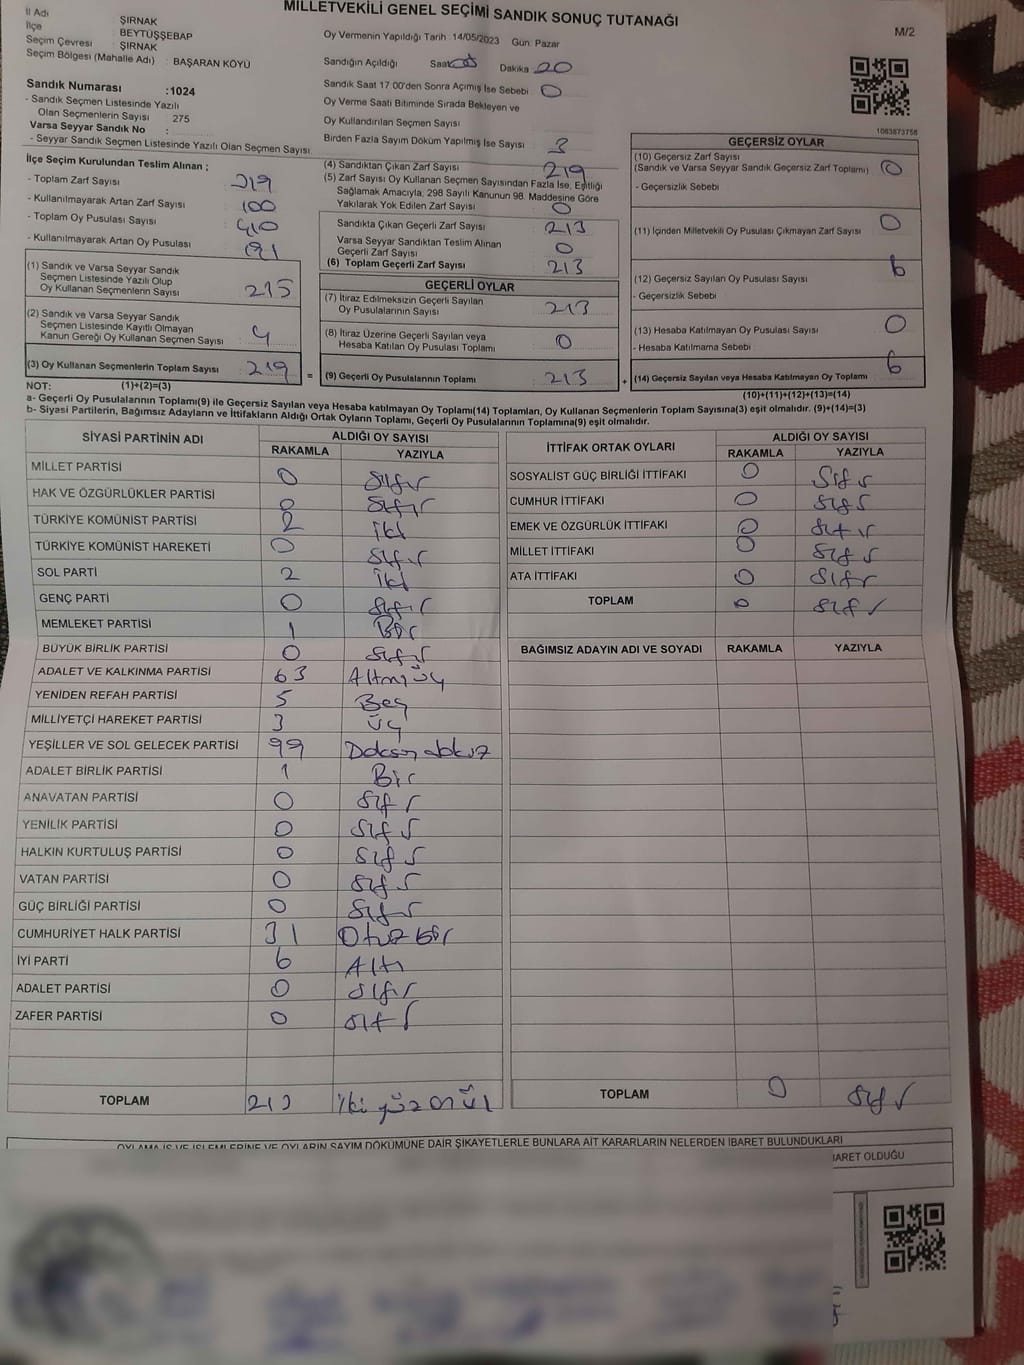 MİLLETVEKİLİ GENEL SEÇİMİ SANDIK SONUÇ TUTANAĞI
M/2
İl Adı : ŞIRNAK
İlçe : BEYTÜŞŞEBAP
Seçim Çevresi : ŞIRNAK
Seçim Bölgesi (Mahalle Adı) : BAŞARAN KÖYÜ
Sandık Numarası :1024
- Sandık Seçmen Listesinde Yazılı
Olan Seçmenlerin Sayısı 275
Varsa Seyyar Sandık No :
- Seyyar Sandık Seçmen Listesinde Yazılı Olan Seçmen Sayısı:
Oy Vermenin Yapıldığı Tarih :14/05/2023 Gün: Pazar
Sandığın Açıldığı Saat Dakika 20
Sandık Saat 17 00'den Sonra Açımış İse Sebebi 0
Oy Verme Saati Bitiminde Sırada Bekleyen ve
Oy Kullandırılan Seçmen Sayısı
Birden Fazla Sayım Döküm Yapılmış İse Sayısı 3
1083873756
İlçe Seçim Kurulundan Teslim Alınan ;
- Toplam Zarf Sayısı 319
- Kullanılmayarak Artan Zarf Sayısı 100
- Toplam Oy Pusulası Sayısı 410
- Kullanılmayarak Artan Oy Pusulası 191
(1) Sandık ve Varsa Seyyar Sandık
Seçmen Listesinde Yazılı Olup
Oy Kullanan Seçmenlerin Sayısı 215
(2) Sandık ve Varsa Seyyar Sandık
Seçmen Listesinde Kayıtlı Olmayan
Kanun Gereği Oy Kullanan Seçmen Sayısı 4
(3) Oy Kullanan Seçmenlerin Toplam Sayısı 219
=
(4) Sandıktan Çıkan Zarf Sayısı 219
(5) Zarf Sayısı Oy Kullanan Seçmen Sayısından Fazla İse, Eşitliği
Sağlamak Amacıyla, 298 Sayılı Kanunun 98. Maddesine Göre
Yakılarak Yok Edilen Zarf Sayısı 0
Sandıkta Çıkan Geçerli Zarf Sayısı 213
Varsa Seyyar Sandıktan Teslim Alınan
Geçerli Zarf Sayısı 0
(6) Toplam Geçerli Zarf Sayısı 213
GEÇERLİ OYLAR
(7) İtiraz Edilmeksizin Geçerli Sayılan
Oy Pusulalarının Sayısı 213
(8) İtiraz Üzerine Geçerli Sayılan veya
Hesaba Katılan Oy Pusulası Toplamı 0
(9) Geçerli Oy Pusulalarının Toplamı 213
+
GEÇERSİZ OYLAR
(10) Geçersiz Zarf Sayısı
(Sandık ve Varsa Seyyar Sandık Geçersiz Zarf Toplamı) 0
- Geçersizlik Sebebi
(11) İçinden Milletvekili Oy Pusulası Çıkmayan Zarf Sayısı 0
(12) Geçersiz Sayılan Oy Pusulası Sayısı 6
- Geçersizlik Sebebi
(13) Hesaba Katılmayan Oy Pusulası Sayısı 0
- Hesaba Katılmama Sebebi
(14) Geçersiz Sayılan veya Hesaba Katılmayan Oy Toplamı 6
NOT: (1)+(2)=(3) (10)+(11)+(12)+(13)=(14)
a- Geçerli Oy Pusulalarının Toplamı(9) ile Geçersiz Sayılan veya Hesaba katılmayan Oy Toplamı(14) Toplamları, Oy Kullanan Seçmenlerin Toplam Sayısına(3) eşit olmalıdır. (9)+(14)=(3)
b- Siyasi Partilerin, Bağımsız Adayların ve İttifakların Aldığı Ortak Oyların Toplamı, Geçerli Oy Pusulalarının Toplamına(9) eşit olmalıdır.
SİYASİ PARTİNİN ADI ALDIĞI OY SAYISI
RAKAMLA YAZIYLA
MİLLET PARTİSİ 0 Sıfır
HAK VE ÖZGÜRLÜKLER PARTİSİ 0 Sıfır
TÜRKİYE KOMÜNİST PARTİSİ 2 iki
TÜRKİYE KOMÜNİST HAREKETİ 0 Sıfır
SOL PARTİ 2 iki
GENÇ PARTİ 0 Sıfır
MEMLEKET PARTİSİ 1 Bir
BÜYÜK BİRLİK PARTİSİ 0 Sıfır
ADALET VE KALKINMA PARTİSİ 63 Altmışüç
YENİDEN REFAH PARTİSİ 5 Beş
MİLLİYETÇİ HAREKET PARTİSİ 3 üç
YEŞİLLER VE SOL GELECEK PARTİSİ 99 Doksan dokuz
ADALET BİRLİK PARTİSİ 1 Bir
ANAVATAN PARTİSİ 0 Sıfır
YENİLİK PARTİSİ 0 Sıfır
HALKIN KURTULUŞ PARTİSİ 0 Sıfır
VATAN PARTİSİ 0 Sıfır
GÜÇ BİRLİĞİ PARTİSİ 0 Sıfır
CUMHURİYET HALK PARTİSİ 31 Otuz bir
İYİ PARTİ 6 Altı
ADALET PARTİSİ 0 Sıfır
ZAFER PARTİSİ 0 Sıfır
TOPLAM 213 iki yüz onüç
İTTİFAK ORTAK OYLARI ALDIĞI OY SAYISI
RAKAMLA YAZIYLA
SOSYALİST GÜÇ BİRLİĞİ İTTİFAKI 0 Sıfır
CUMHUR İTTİFAKI 0 Sıfır
EMEK VE ÖZGÜRLÜK İTTİFAKI 0 Sıfır
MİLLET İTTİFAKI 0 Sıfır
ATA İTTİFAKI 0 Sıfır
TOPLAM 0 Sıfır
BAĞIMSIZ ADAYIN ADI VE SOYADI RAKAMLA YAZIYLA
TOPLAM 0 Sıfır
OYLAMA İŞ VE İŞLEMLERİNE VE OYLARIN SAYIM DÖKÜMÜNE DAİR ŞİKAYETLERLE BUNLARA AİT KARARLARIN NELERDEN İBARET BULUNDUKLARI
İBARET OLDUĞU